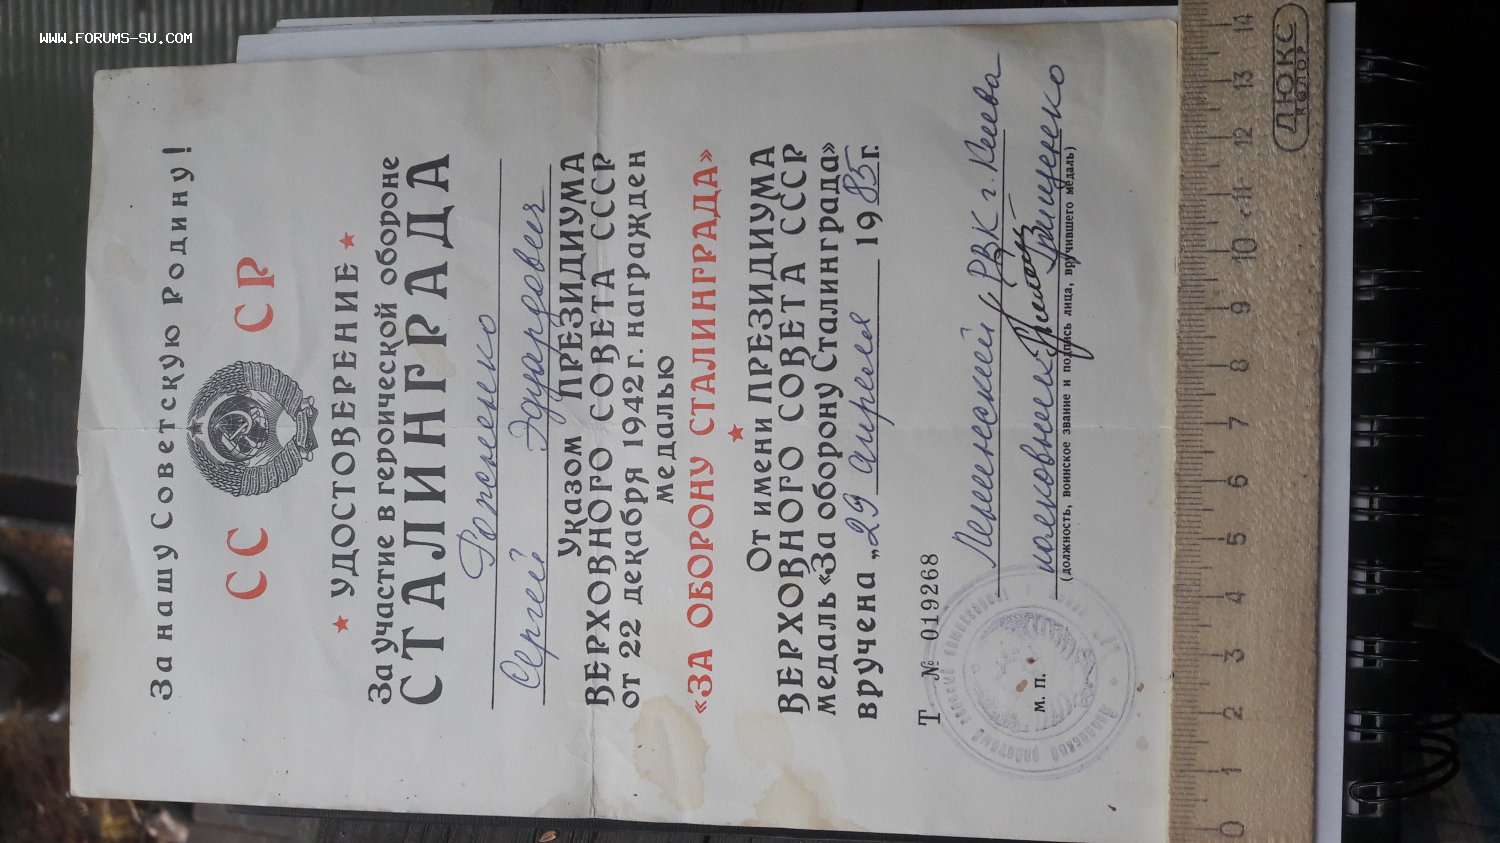 WWW.FORUMS-SU.COM
За нашу Советскую Родину!
СС СР
УДОСТОВЕРЕНИЕ
За участие в героической обороне
СТАЛИНГРАДА
Рапоненко
Сергей Эдуардович
Указом ПРЕЗИДИУМА
ВЕРХОВНОГО СОВЕТА СССР
от 22 декабря 1942 г. награжден
медалью
«ЗА ОБОРОНУ СТАЛИНГРАДА»
От имени ПРЕЗИДИУМА
ВЕРХОВНОГО СОВЕТА СССР
медаль «За оборону Сталинграда»
вручена „29 апреля 1985 г.
Т № 019268
РВК г. Киева
м. п. полковник Грищенко
(должность, воинское звание и подпись лица, вручившего медаль)
0 1 2 3 4 5 6 7 8 9 10 11 12 13 14
ЛЮКС
КОЛОР